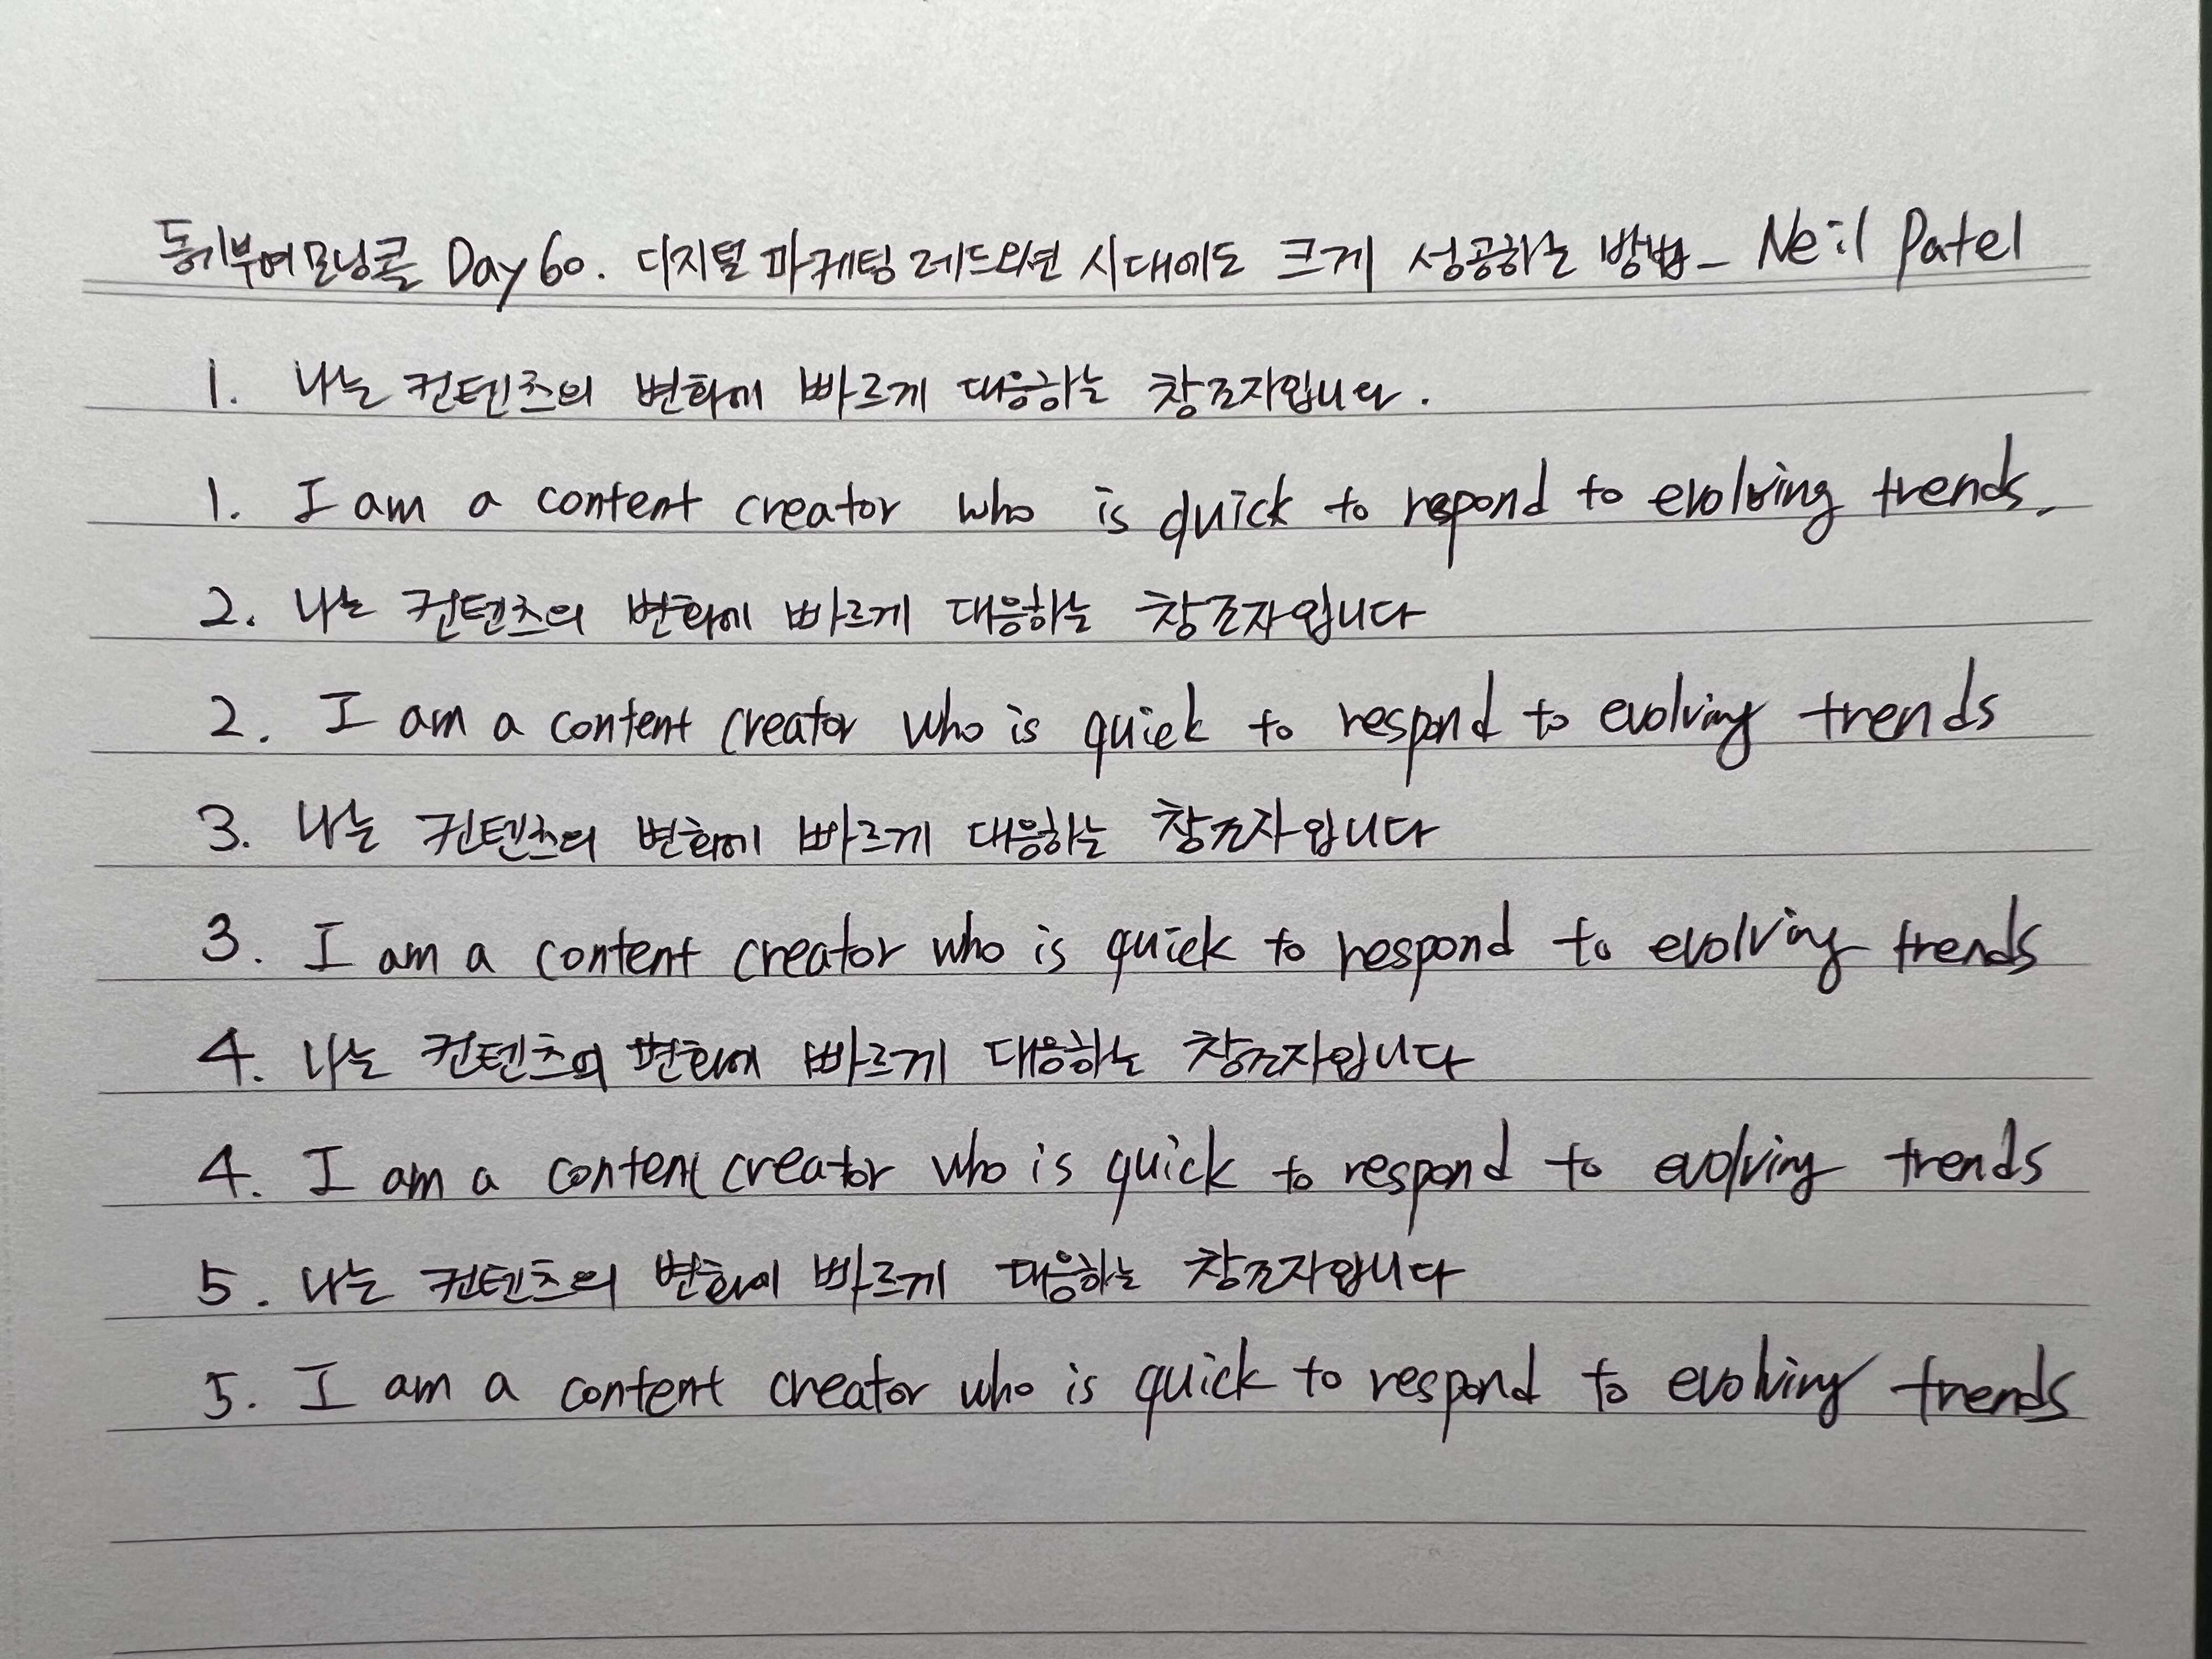 동기부여모닝콜 Day 60. 디지털 마케팅 레드오션 시대에도 크게 성공하는 방법_ Neil Patel
1. 나는 컨텐츠의 변화에 빠르게 대응하는 창조자입니다.
1. I am a content creator who is quick to respond to evolving trends.
2. 나는 컨텐츠의 변화에 빠르게 대응하는 창조자입니다
2. I am a content creator who is quick to respond to evolving trends
3. 나는 컨텐츠의 변화에 빠르게 대응하는 창조자입니다
3. I am a content creator who is quick to respond to evolving trends
4. 나는 컨텐츠의 변화에 빠르게 대응하는 창조자입니다
4. I am a content creator who is quick to respond to evolving trends
5. 나는 컨텐츠의 변화에 빠르게 대응하는 창조자입니다
5. I am a content creator who is quick to respond to evolving trends